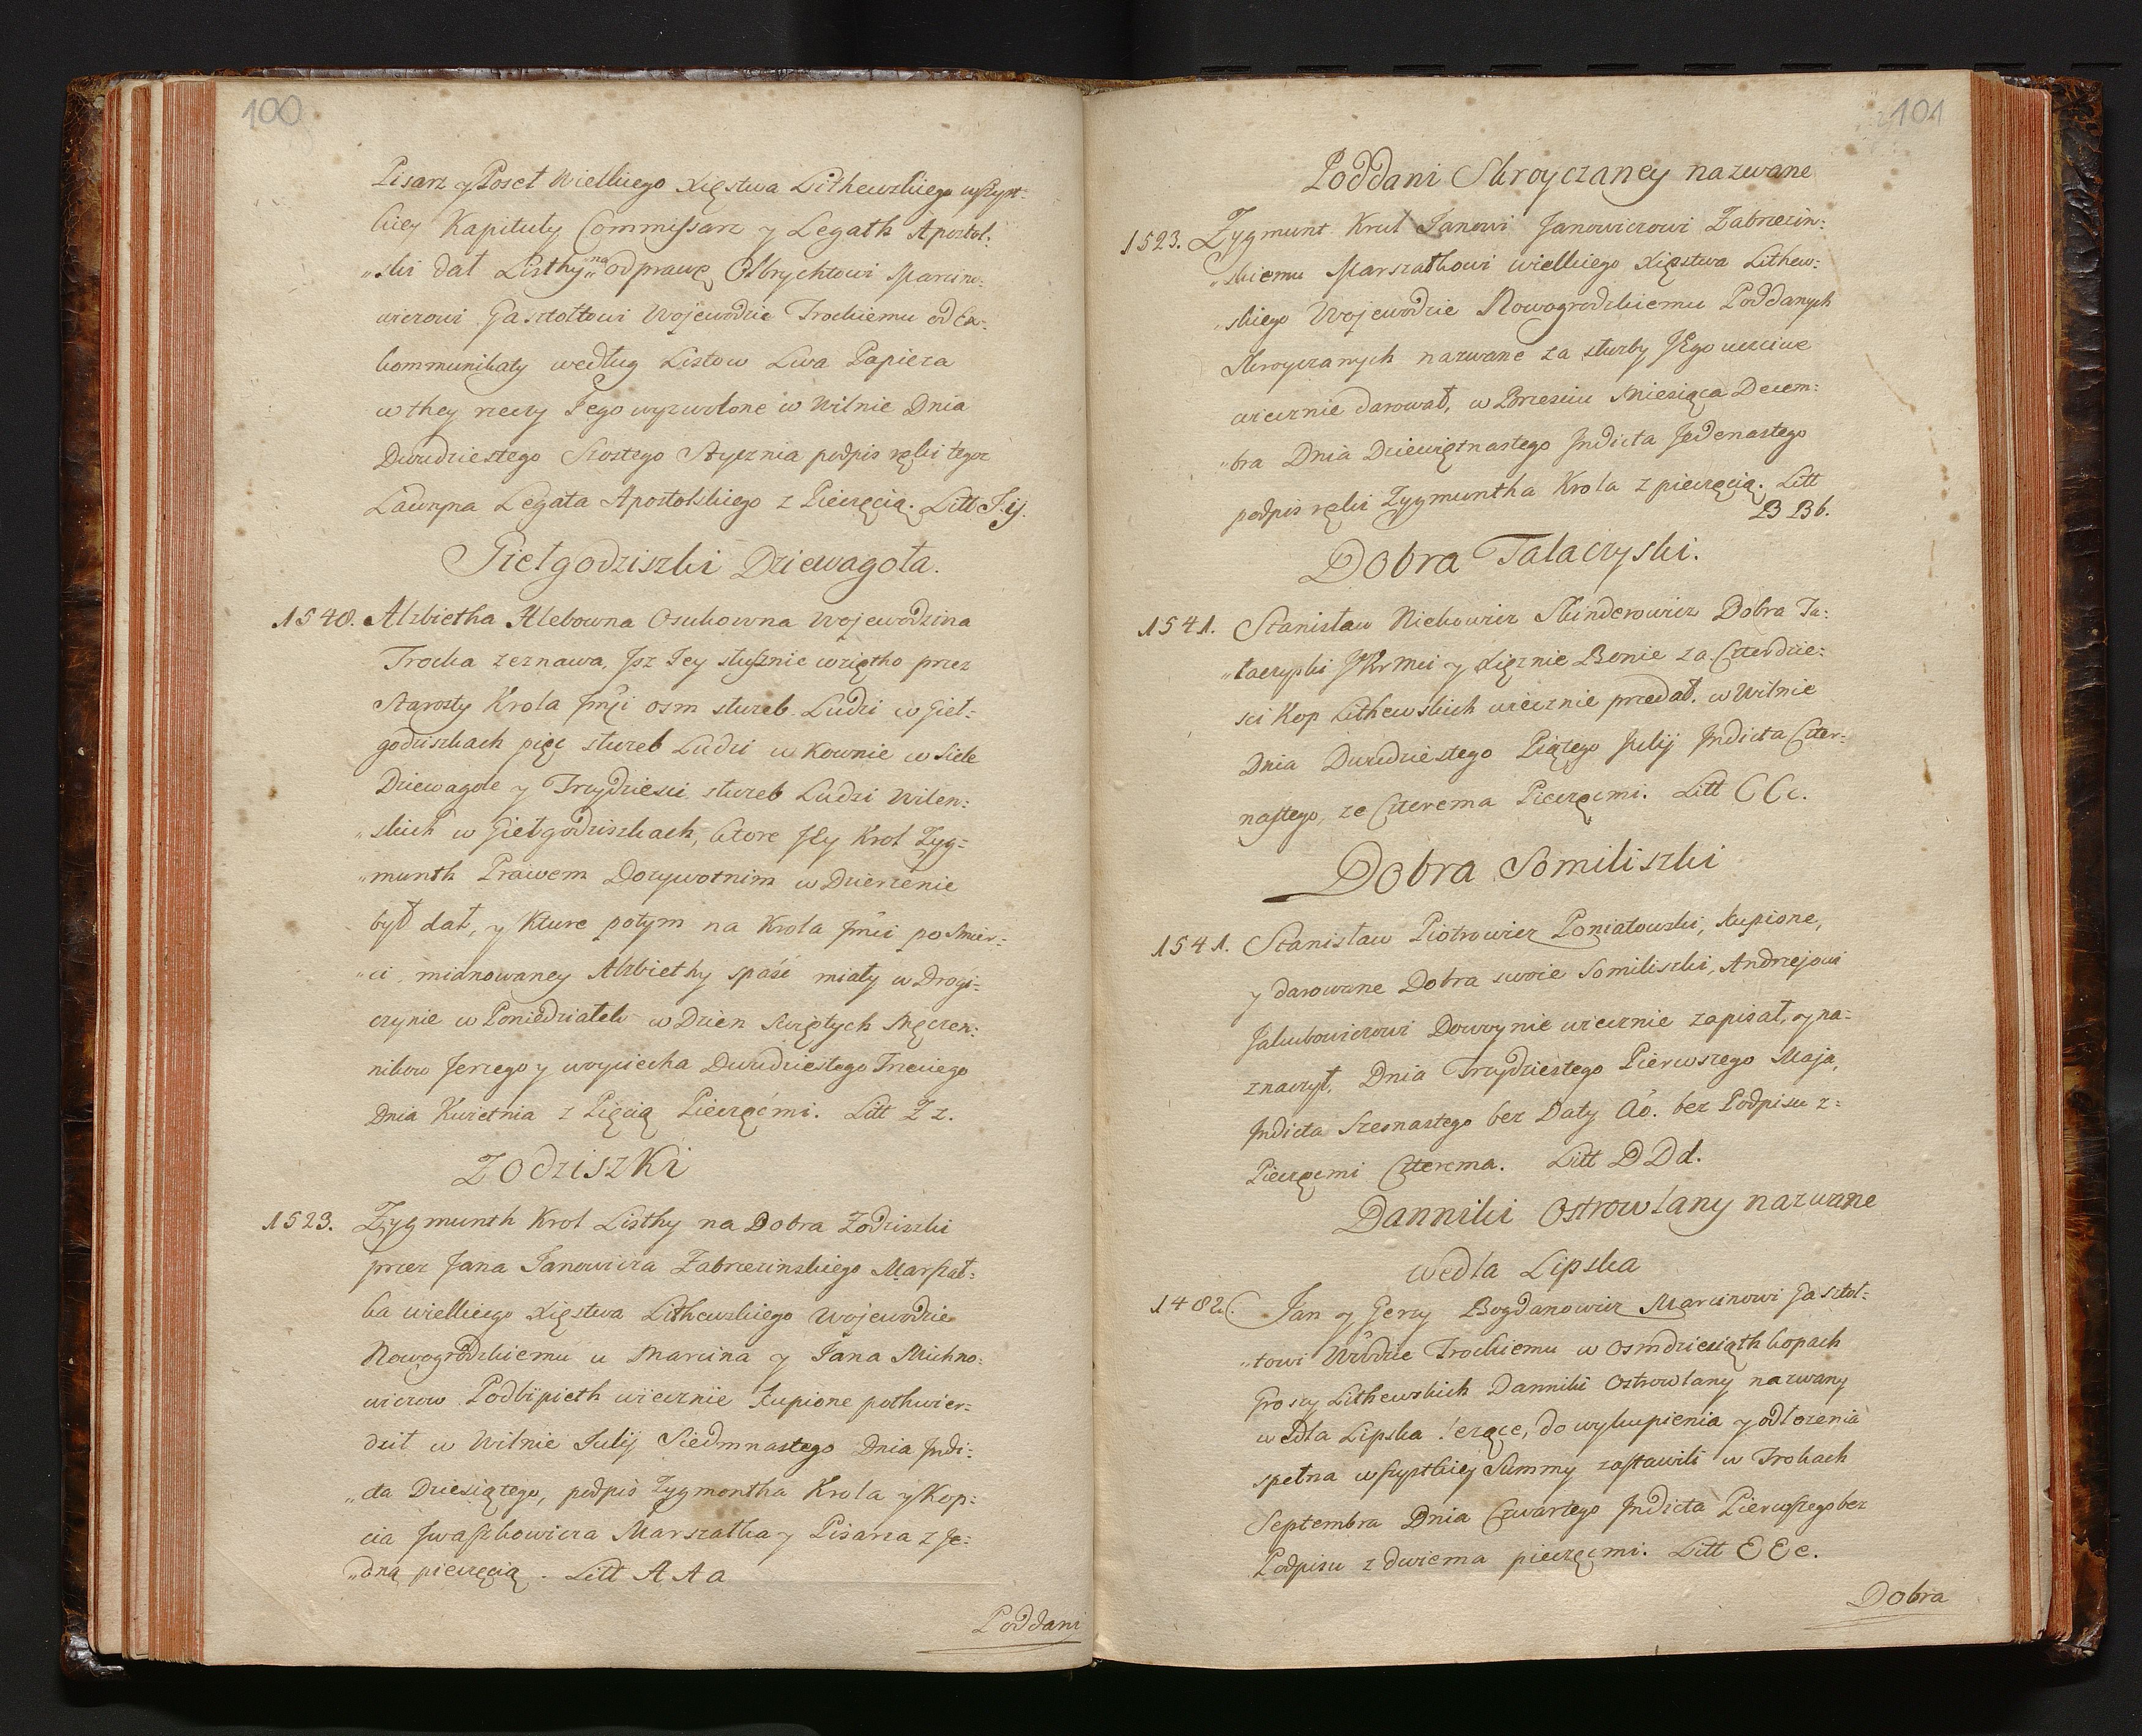 100
Pisarz y Poseł Wielkiego Xięstwa Lithewskiego wszyst-
kiey Kapituły Commissarz y Legath Apostol:
„ski dał Listhy na odprawę Olbrychtowi Marcino:
wiczowi Gasztołtowi Wojewodzie Trockiemu od Ex:
kommunikaty według Listow Lwa Papieza
w they rzeczy Jego wyzwolone w Wilnie Dnia
Dwudziestego Szostego Stycznia podpis ręki tegoz
Lawryna Legata Apostolskiego z Pieczęcią. Litt
Gietgodziszki Dziewagoła.
1540. Alzbietha Hlebowna Osukowna Wojewodzina
Trocka zeznawa, Jsz Jey słusznie wziętho przez
Starosty Krola Jmci osm słuzeb Ludzi w Giet-
godziszkach pięc słuzeb Ludzi w Kownie w Siele
Dziewagole y Trzydziesci słuzeb Ludzi Wilen:
„skich w Gietgodziszkach, ktore Jey Krol Zyg=
„munth Prawem Dozywotnim w Dzierzenie
był dał, y Kture potym na Krola Jmci po Smier-
„ci mianowaney Alzbiethy spaść miały w Drogi-
czynie w Poniedziałek w Dzien Swiętych Męczen:
nikow Jerzego y woyciecha Dwudziestego Trzeciego
Dnia Kwietnia z Pięcią Pieczęćmi. Litt Z z.
Zodziszki
1523. Zygmunth Krol Listhy na Dobra Zodziszki
przez Jana Janowicza Zabrzezinskiego Marszał-
ka wielkiego Xięstwa Lithewskiego Wojewodzie
Nowogrodzkiemu u Marcina y Jana Michno:
wiczow Podbipieth wiecznie Kupione pothwier-
dził w Wilnie Julij Siedmnastego Dnia Jndi-
„cta Dziesiątego, podpis Zygmontha Krola y Kop:
cia Jwaszkowicza Marszałka y Pisarza z Je:
„dną pieczęcią. Litt A A a
Poddani
101
Poddani Skroyczaney nazwane
1523. Zygmunt Krul Janowi Janowiczowi Zabrzezin:
„skiemu Marszałkowi wielkiego Xięstwa Lithew:
„skiego Wojewodzie Nowogrodzkiemu Poddanych
Skroyczanych nazwane za słuzby Jego uczciwe
wiecznie darował, w Brzesciu Miesiąca Decem:
„bra Dnia Dziewiętnastego Jndicta Jedenastego
podpis ręki Zygmuntha Krola z pieczęcią. Litt
B B b.
Dobra Talaczyski.
1541. Stanisław Nickowicz Skinderowicz Dobra Ta:
„łaczyski JKrMci y Xięznie Bonie za Czterdzie:
sci Kop Lithewskich wiecznie przedał. w Wilnie
Dnia Dwudziestego Piątego Julij Jndicta Czter-
nastego, ze Czterema Pieczęcmi. Litt C C c.
Dobra Somiliszki
1541. Stanisław Piotrowicz Poniatowski, kupione,
y darowane Dobra swoie Somiliszki, Andrzejowi
Jakubowiczowi Dowoynie wiecznie zapisał, y na=
znaczył, Dnia Trzydziestego Pierwszego Maja,
Jndicta Szesnastego bez Daty Ao. bez Podpisu z=
Pieczęcmi Czterema. Litt D D d.
Danniki Ostrowlany nazwane
wedla Lipska
1482. Jan y Gerzy Bogdanowicz Marcinowi Gasztoł-
„towi Wwdzie Trockiemu w Osmdziesiąth kopach
Groszy Lithewskich Danniki Ostrowlany nazwany
wedla Lipska lezące, do wykupienia y odłozenia
spełna wszystkiej Summy zastawili w Trokach
Septembra Dnia Czwartego Jndicta Pierwszego bez
Podpisu z dwiema pieczęcmi. Litt E E e.
Dobra